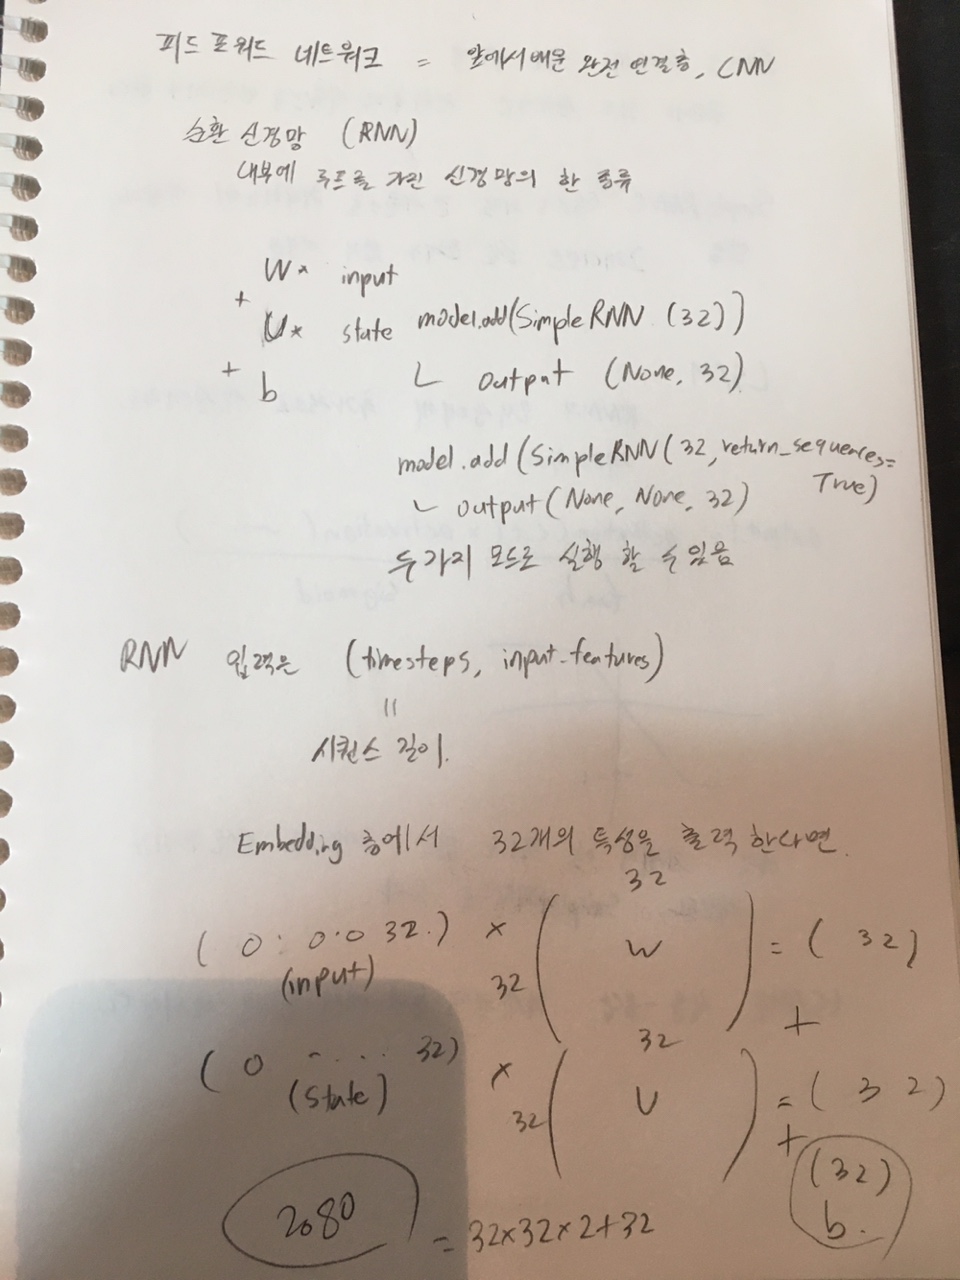 피드포워드 네트워크 = 앞에서 배운 완전 연결층, CNN
순환 신경망 (RNN)
내부에 루프를 가진 신경망의 한 종류
W* input
+
U* state
+
b
model.add(SimpleRNN (32))
└ output (None, 32)
model.add(SimpleRNN(32, return_sequences=
True)
└ output(None, None, 32)
두가지 모드로 실행 할 수 있음
RNN 입력은 (timesteps, input_features)
=
시퀀스 길이.
Embedding 층에서 32개의 특성을 출력 한다면.
32
( 0 : 0.0 32.) × 32 ( W ) = ( 32)
(input)
+
32
( 0 - .... 32) × 32 ( U ) = ( 3 2 )
(state)
+
(32)
b.
2080 = 32×32×2+32